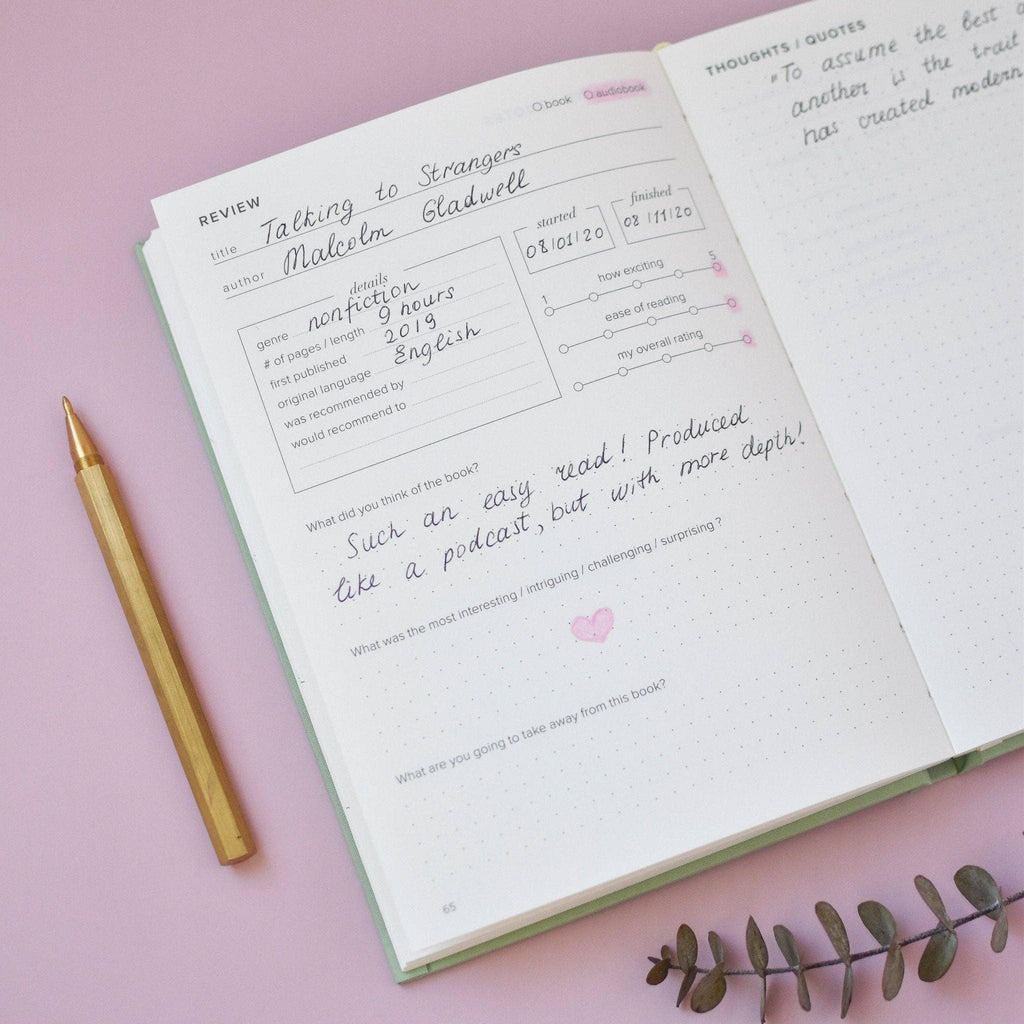 ○ book ○ audiobook
REVIEW
title Talking to Strangers
author Malcolm Gladwell
details
genre nonfiction
# of pages / length 9 hours
first published 2019
original language English
was recommended by
would recommend to
started
08/01/20
finished
08/11/20
1 how exciting 5
ease of reading
my overall rating
What did you think of the book?
Such an easy read! Produced
like a podcast, but with more depth!
What was the most interesting / intriguing / challenging / surprising?
What are you going to take away from this book?
65
THOUGHTS / QUOTES
"To assume the best
another is the trait
has created modern